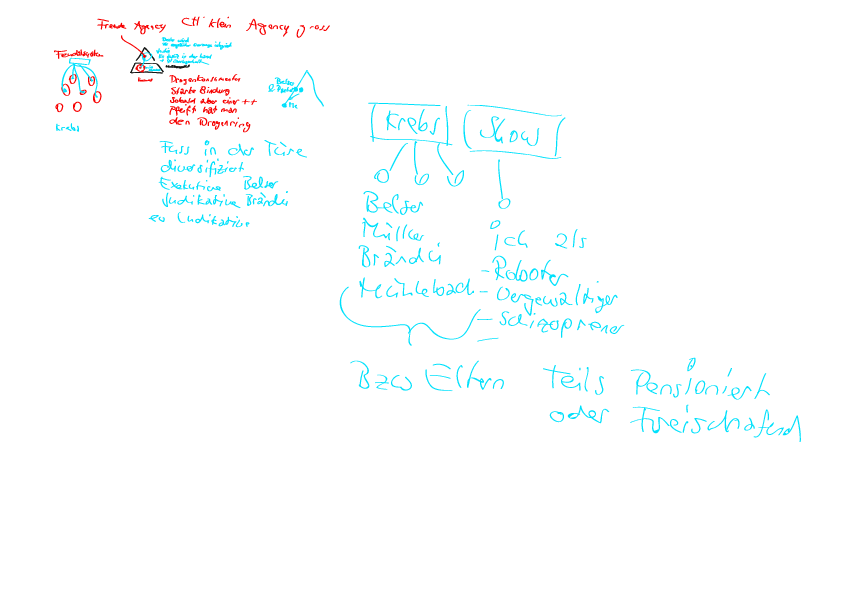 Fremde Agency CH klein Agency gross
Feudalsystem
Krebs
Drogenkonsumenten
Starke Bindung
Sobald aber eine ++
Pfeift hat man
den Drogenring
Belser
Fuss in der Türe
diversifiziert
Exekutive Belser
Judikative Brändli
Krebs Show
Belser
Müller
Brändli
Mühlebach
ich als
- Roboter
- Vergewaltiger
- Schizoprener
Bzw Eltern teils Pensioniert
oder Freischafend